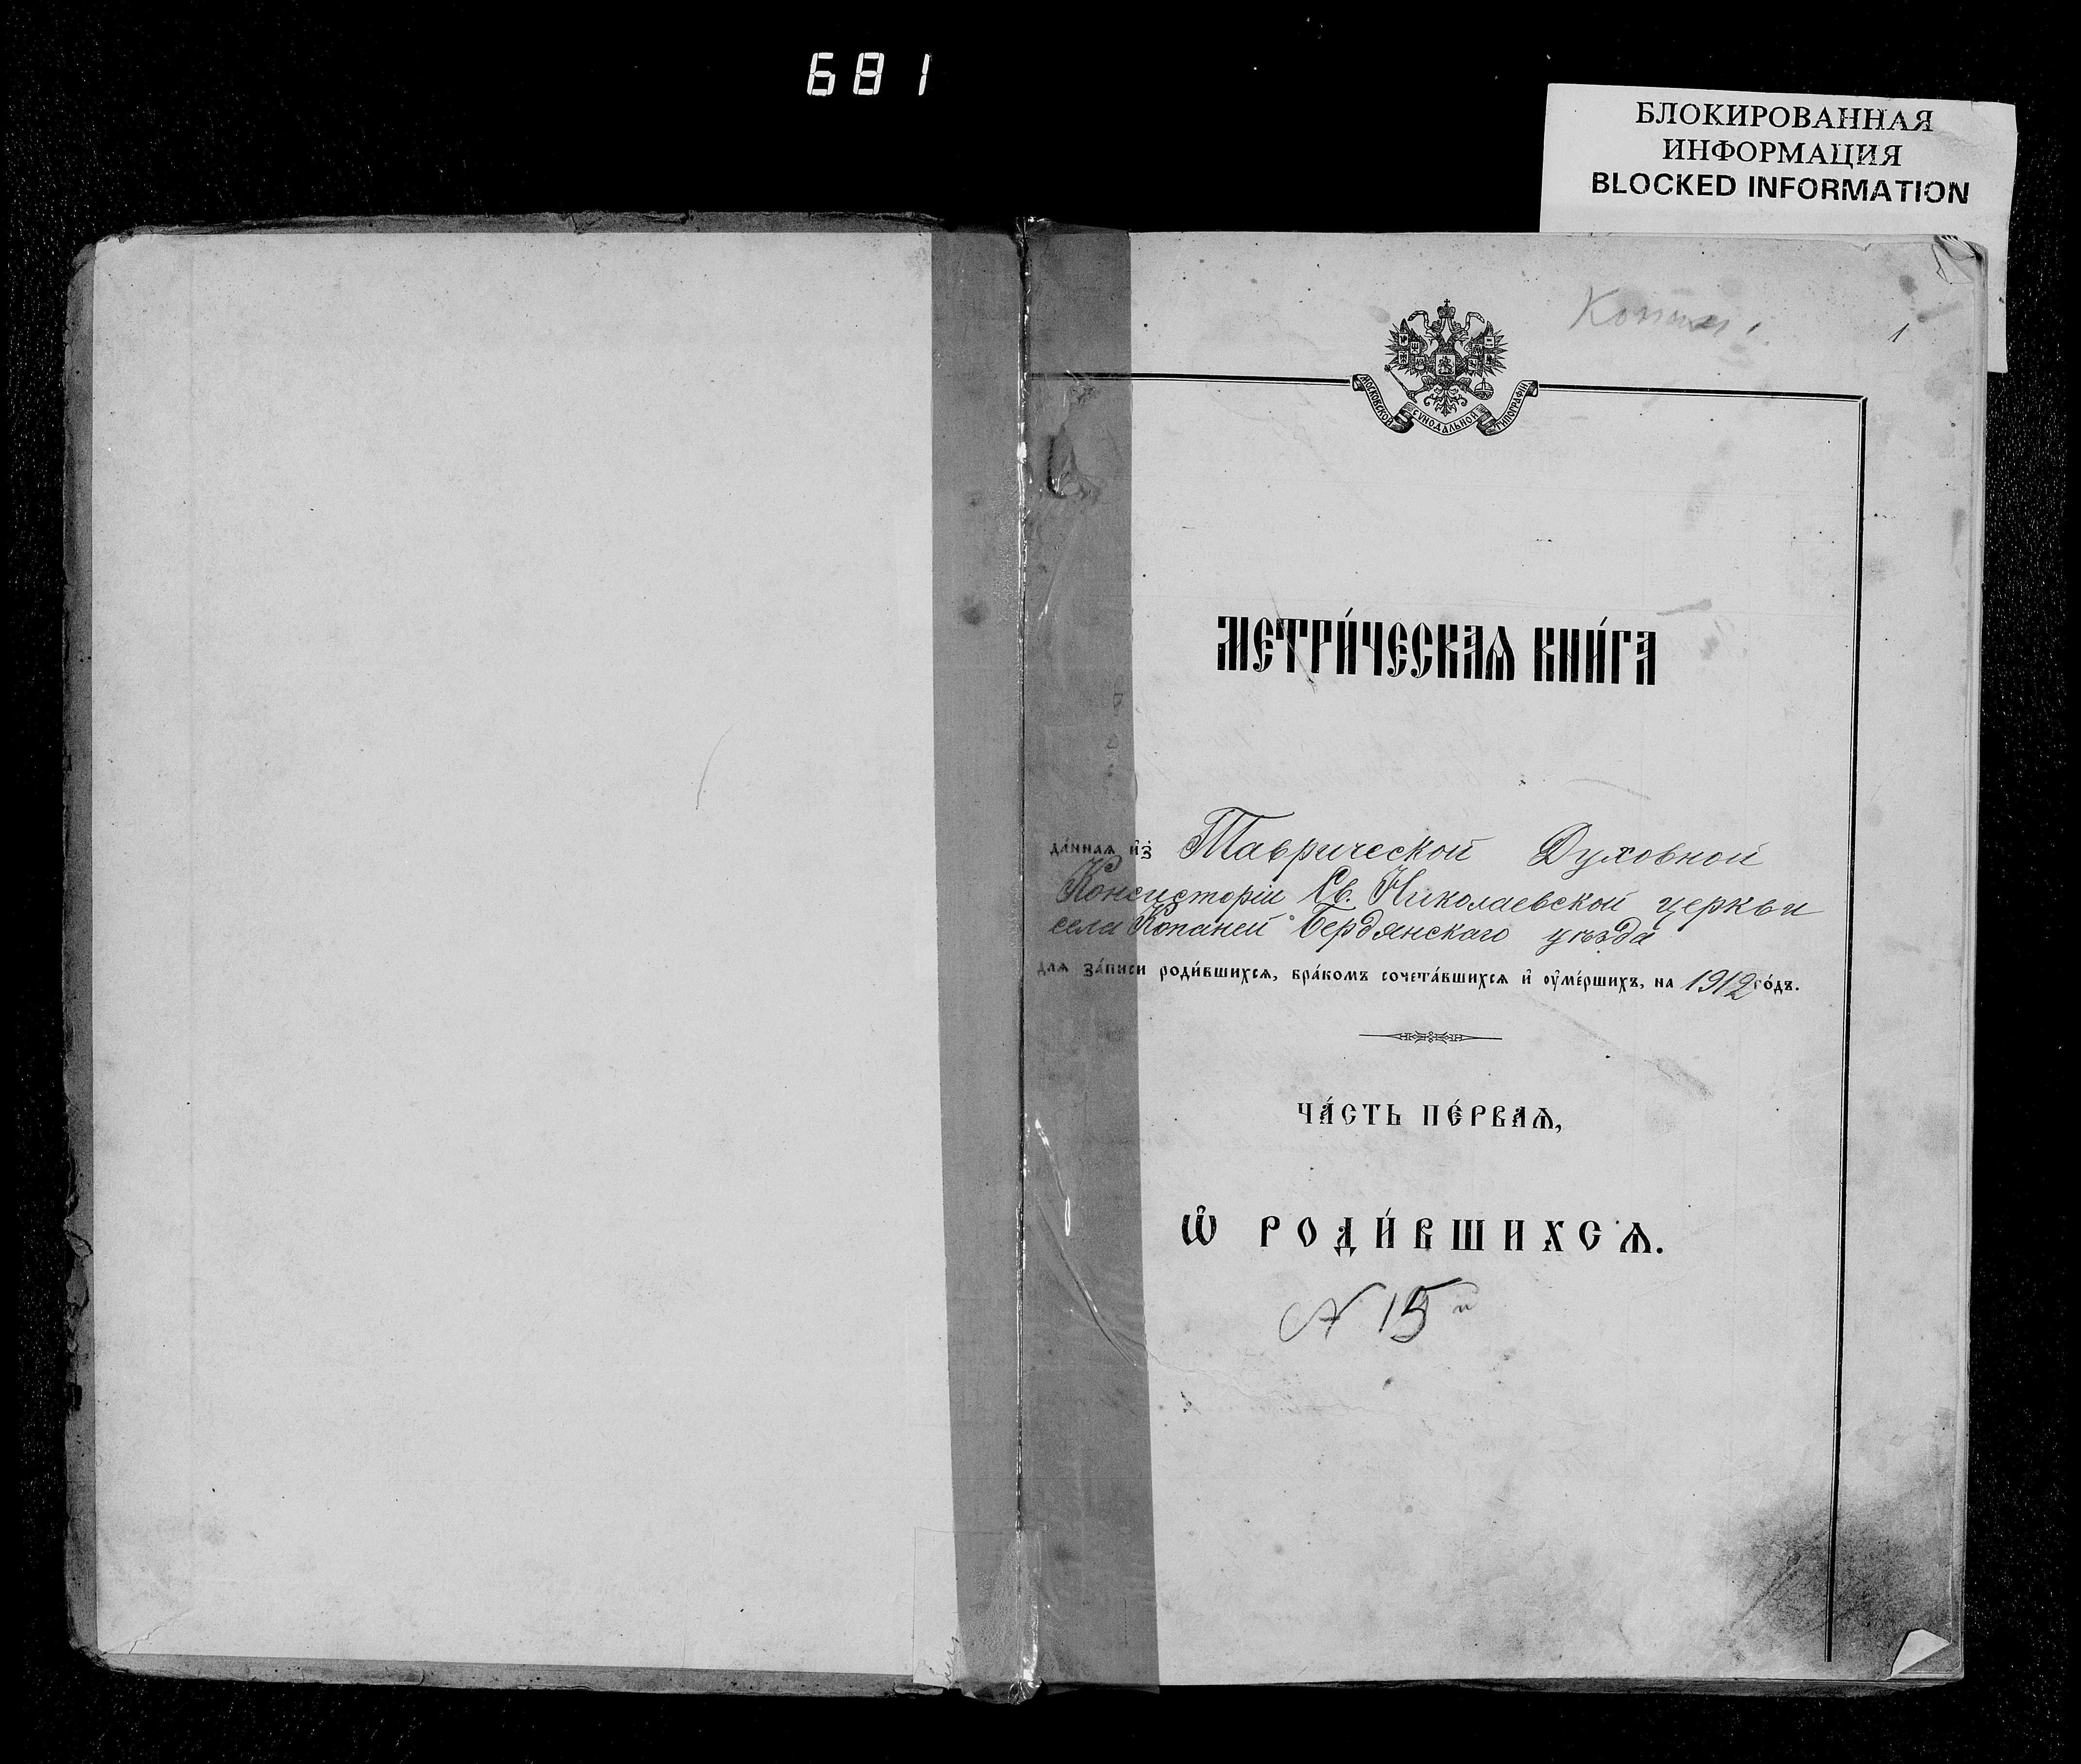 681
БЛОКИРОВАННАЯ
ИНФОРМАЦИЯ
BLOCKED INFORMATION
1
МОСКОВСКОЙ СѴНОДАЛЬНОЙ ТИПОГРАФІИ
МЕТРИ́ЧЕСКАѦ КНИ́ГА
да́ннаѧ и҆з̾ Таврической Духовной
Консисторіи Св. Николаевской церкви
села Копаней Бердянскаго уѣзда
длѧ за́писи роди́вшихсѧ, бра́комъ сочета́вшихсѧ и҆ ᲂу҆ме́ршихъ, на 1912 го́дъ.
ЧА́СТЬ ПЕ́РВАѦ,
Ѽ РОДИ́ВШИХСѦ.
№ 15 й